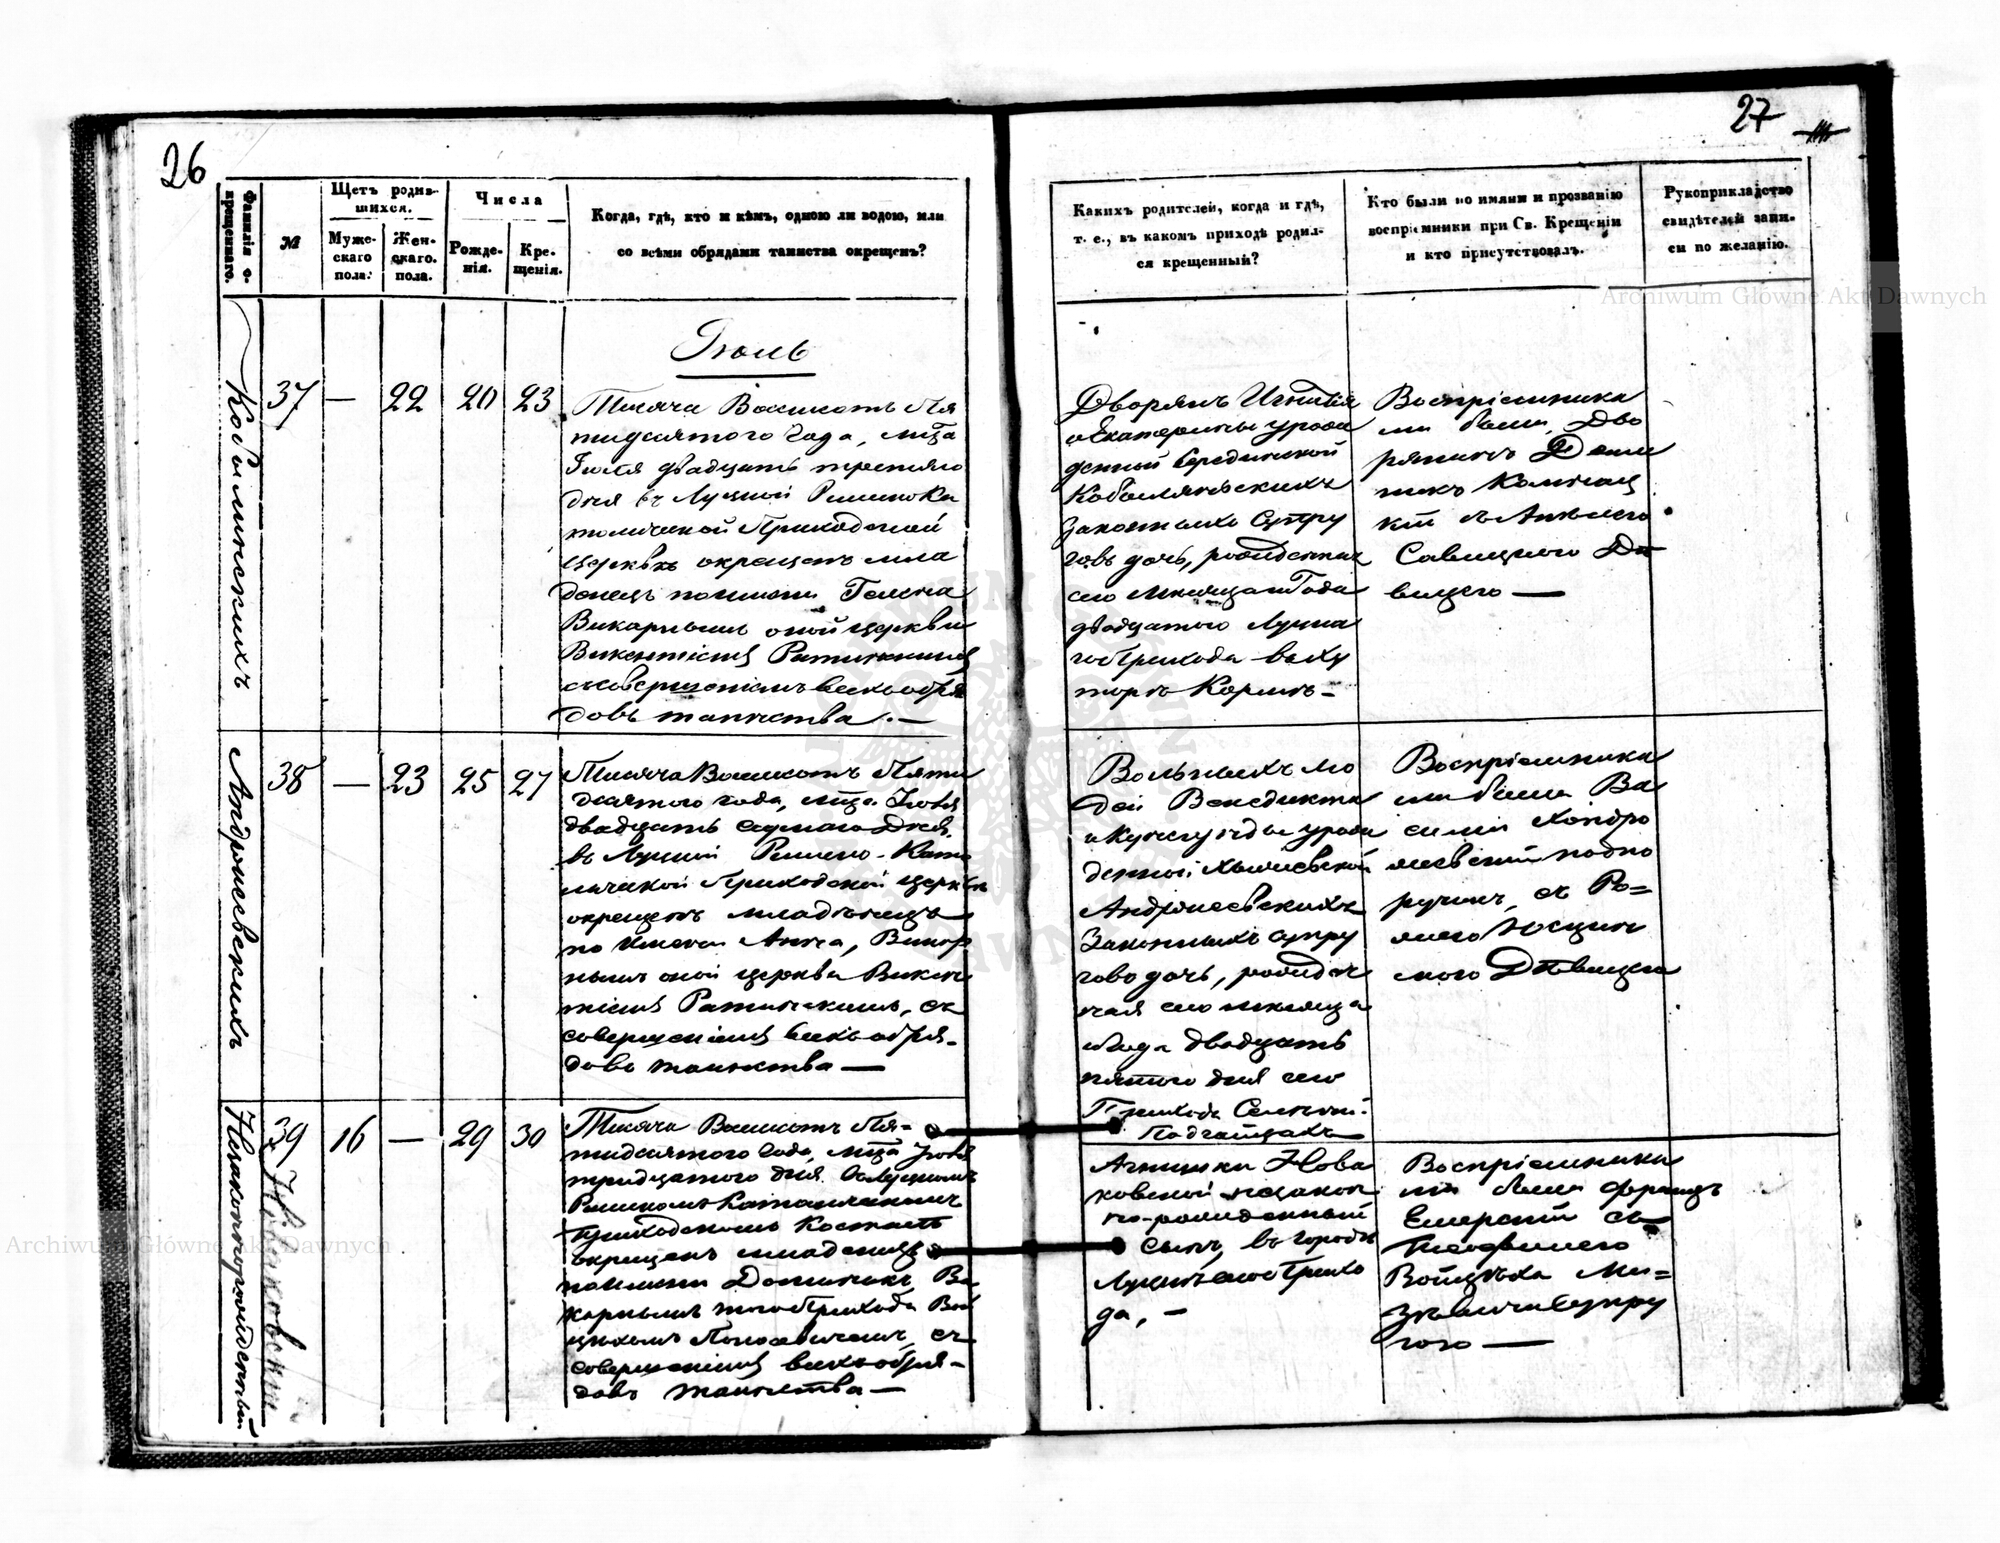 26
Фамилія о-
крещеннаго.
№
Щетъ родив-
шихся.
Муже-
скаго
пола.
Жен-
скаго.
пола.
Числа
Рожде-
нія.
Кре-
щенія.
Когда, гдѣ, кто и кѣмъ, одною ли водою, или
со всѣми обрядами таинства окрещенъ?
Іюль
37 — 22 20 23
Тысяча Восимсотъ Пя
тидсятого года, мца
Іюля двадцать третяго
дня въ Луцкой Римпока
толической Приходской
Церквѣ окрещенъ мла
денецъ поимени Гелена
Викарнымъ оной церкви
Викентіемъ
ссовершеніемъ всехъ обря
довъ таинства. —
Андріевскихъ
38 — 23 25 27
Тысяча Восимсотъ Пяти
десятого года, мца Іюля
двадцать седмаго Дня,
въ Луцкой Римско-Като
лической Приходской церквѣ
окрещенъ младенецъ
по имени Анна, Викар
нымъ оной церкви Викен
тіемъ
совершеніемъ всехъ обря-
довъ таинства —
Незаконнорожденный
Новаковскій
39 16 — 29 30
Тысяча Восимсотъ Пя-
тидсятого года, мца Іюля
тридцатого дня въ Луцкомъ
Римскокатолическомъ
Приходскомъ Костелѣ
окрещенъ младенецъ
поимени Доминикъ, Ви
карнымъ того Прихода Вой
цехомъ съ
совершеніемъ всехъ обря-
довъ таинства —
27
Какихъ родителей, когда и гдѣ,
т. е., въ какомъ приходѣ родил-
ся крещенный?
Кто были по имяни и прозванію
воспріемники при Св. Крещеніи
и кто присутствовалъ.
Рукоприкладство
свидѣтелей запи-
си по желанію.
Дворянъ Игнатія
и Екатерины урож
денной
законныхъ супру
говъ дочь, рожденная
сего месяца и Года
двадцатого Луцка
го Прихода въ ху
торѣ
Воспріемника
ми были, Дво
рянинъ Доми
никъ
кій съ
Вольныхъ лю
дей Венедикта
и Кунегунды урож
денной
Андріевскихъ
Законныхъ супру
говъ дочь, рожден
ная сего месяца
и Года двадцать
пятого дня сего
Прихода
Подгайцахъ
Воспріемника
ми были Ва
силій
подпо
ручикъ, съ Ро-
Агнишки Нова
ковской незакон
но-рожденный
сынъ, въ городѣ
Луцкѣ сего Прихо
да, —
Воспріемника
ми были Францъ
съ
Войцеха Ми-
супру
гою —
Archiwum Główne Akt Dawnych
Archiwum Główne Akt Dawnych